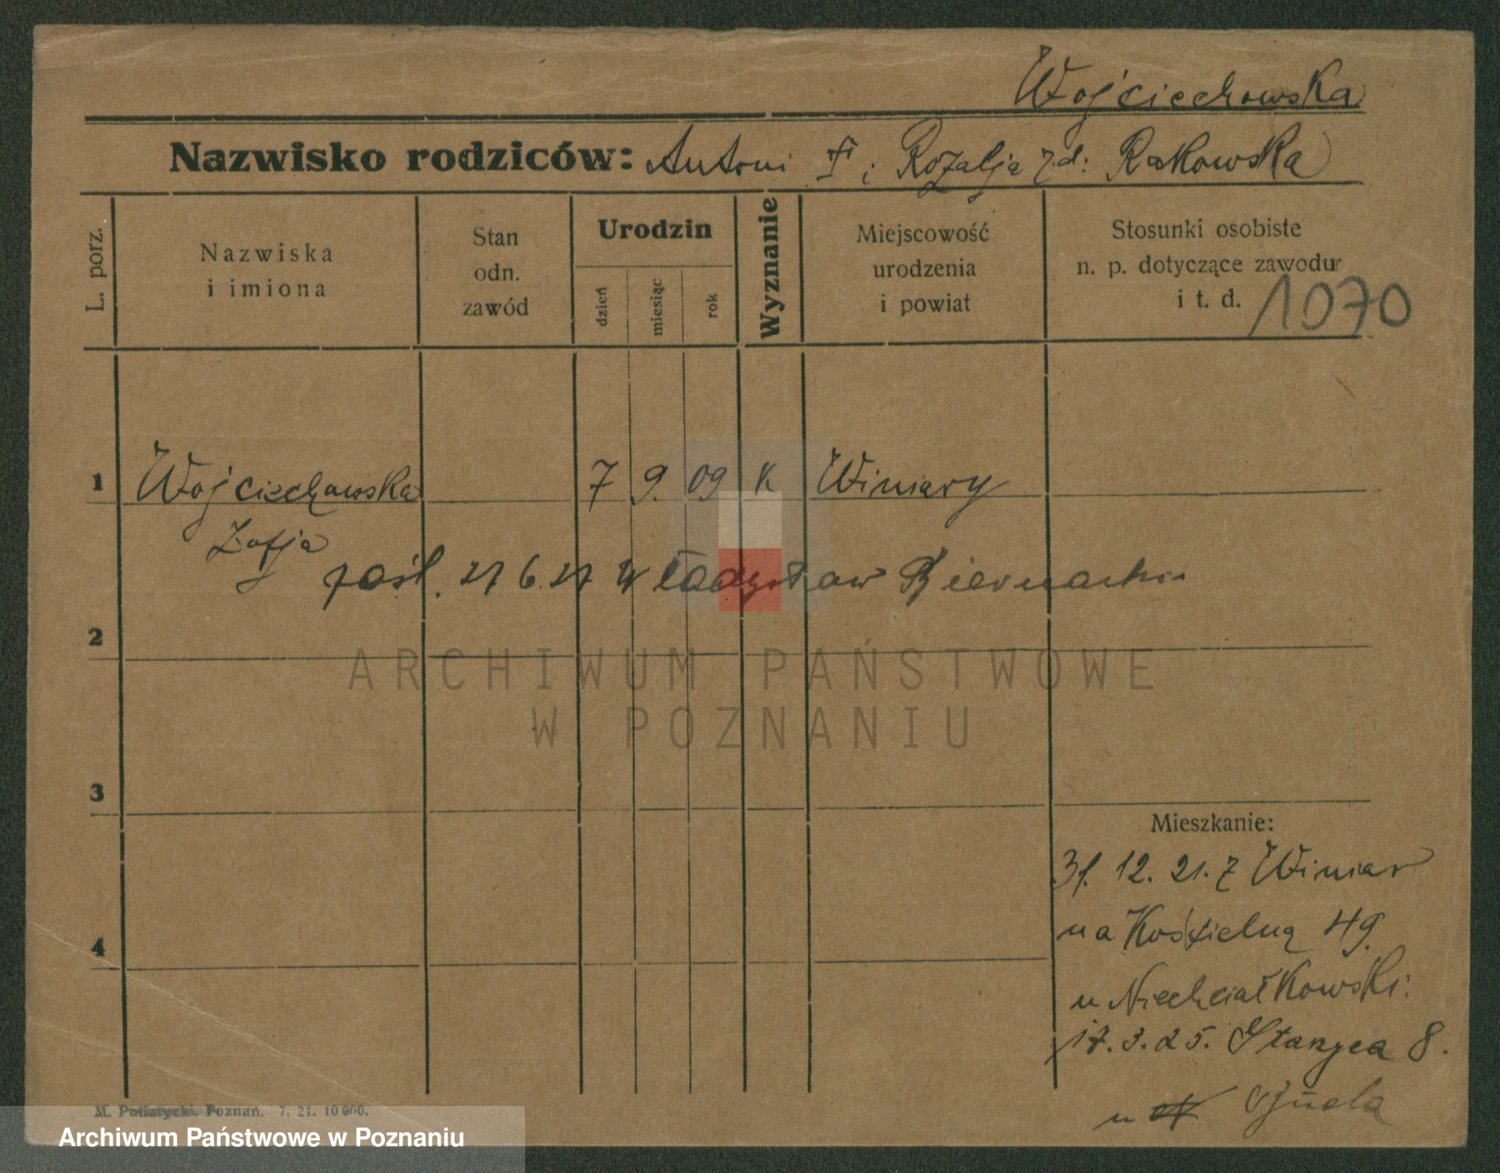 Wojciechowska
Nazwisko rodziców: Antoni † i Rozalja zd: Rakowska
L. porz.
Nazwiska i imiona
Stan odn. zawód
Urodzin
dzień
miesiąc
rok
Wyznanie
Miejscowość urodzenia i powiat
Stosunki osobiste n. p. dotyczące zawodu i t. d.
1070
1 Wojciechowska 7 9. 09 K Winiary
Zofja
pośl. 27 6. 27 Władysław Biernacki
2
ARCHIWUM PAŃSTWOWE
W POZNANIU
3
Mieszkanie:
31. 12. 21. z Winiar
na Kościelną 49.
4
u Niechciałkowski:
17. 3. 25. Stanyca 8.
u
M. Putiatycki. Poznań. 7. 21. 10 000.
Archiwum Państwowe w Poznaniu